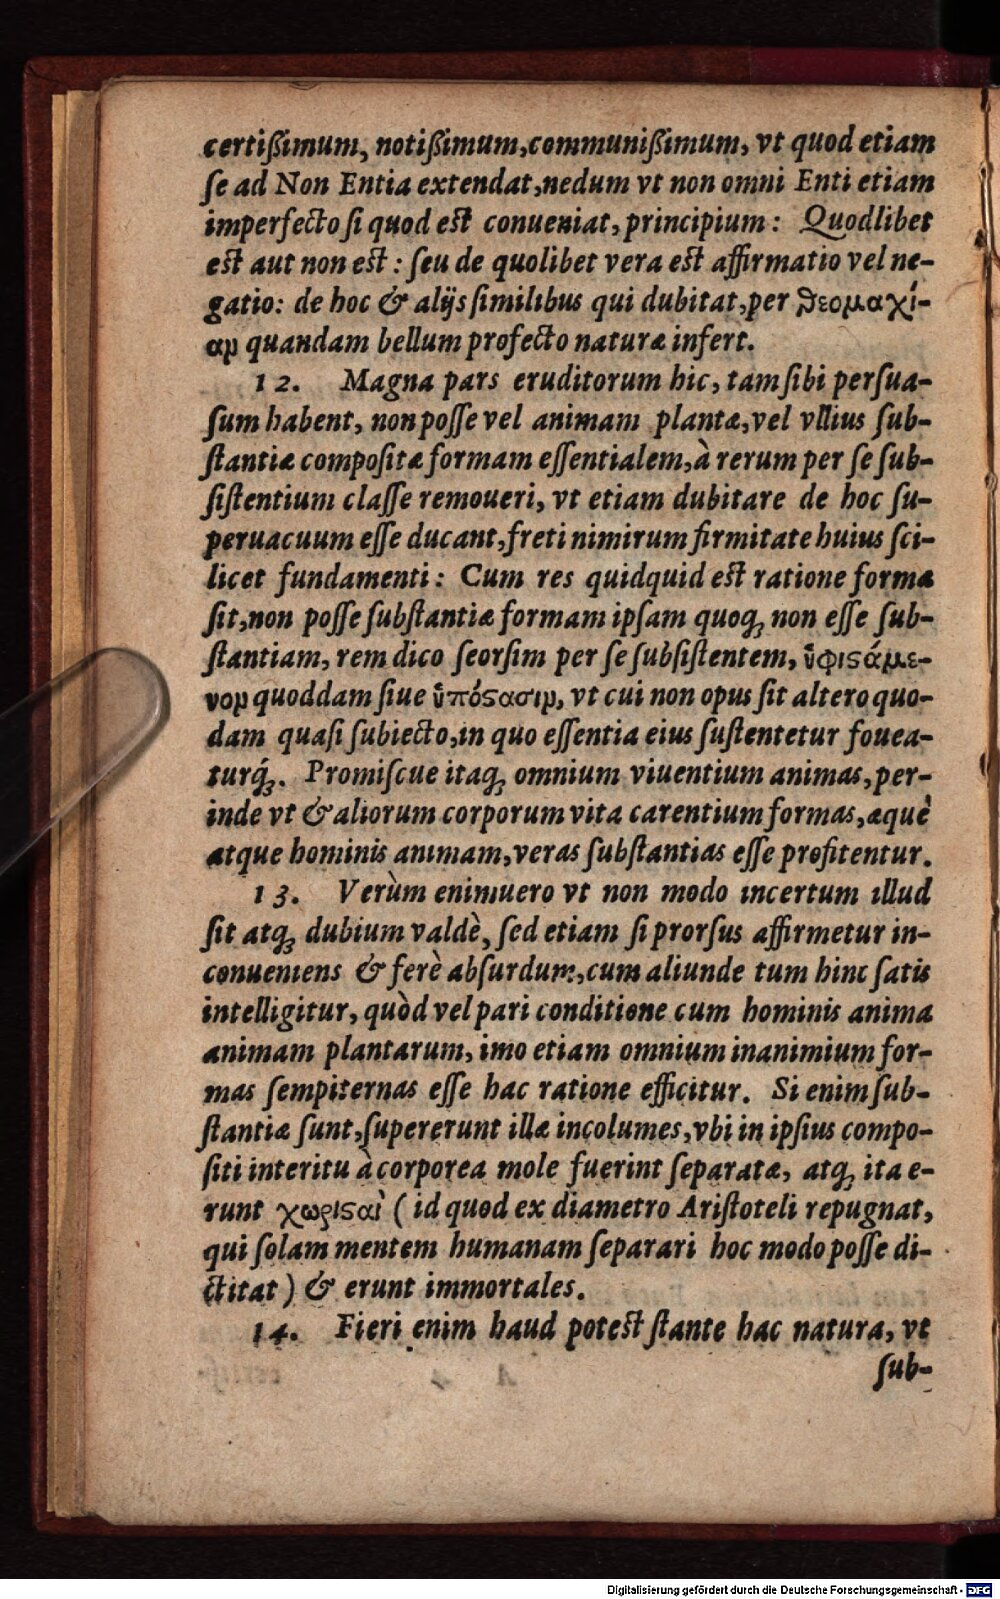 certißimum, notißimum, communißimum, vt quod etiam
ſe ad Non Entia extendat, nedum vt non omni Enti etiam
imperfecto ſi quod est conueniat, principium: Quodlibet
est aut non est: ſeu de quolibet vera est affirmatio vel ne-
gatio: de hoc & alijs ſimilibus qui dubitat, per θεομαχί-
αν quandam bellum profecto naturæ infert.
12. Magna pars eruditorum hic, tam ſibi perſua-
ſum habent, non poſſe vel animam plantæ, vel vllius ſub-
ſtantiæ compoſitæ formam eſſentialem, à rerum per ſe ſub-
ſiſtentium claſſe remoueri, vt etiam dubitare de hoc ſu-
peruacuum eſſe ducant, freti nimirum firmitate huius ſci-
licet fundamenti: Cum res quidquid est ratione formæ
ſit, non poſſe ſubſtantiæ formam ipſam quoq; non eſſe ſub-
ſtantiam, rem dico ſeorſim per ſe ſubſiſtentem, ὑφιϛάμε-
νον quoddam ſiue ὑπόϛασιν, vt cui non opus ſit altero quo-
dam quaſi ſubiecto, in quo eſſentia eius ſuſtentetur fouea-
turq́;. Promiſcue itaq; omnium viuentium animas, per-
inde vt & aliorum corporum vita carentium formas, æquè
atque hominis animam, veras ſubſtantias eſſe profitentur.
13. Verùm enimuero vt non modo incertum illud
ſit atq; dubium valdè, ſed etiam ſi prorſus affirmetur in-
conueniens & ferè abſurdum, cum aliunde tum hinc ſatis
intelligitur, quòd vel pari conditione cum hominis anima
animam plantarum, imo etiam omnium inanimium for-
mas ſempiternas eſſe hac ratione efficitur. Si enim ſub-
ſtantiæ ſunt, ſupererunt illæ incolumes, vbi in ipſius compo-
ſiti interitu à corporea mole fuerint ſeparatæ, atq; ita e-
runt χωριϛαὶ (id quod ex diametro Ariſtoteli repugnat,
qui ſolam mentem humanam ſeparari hoc modo poſſe di-
ctitat) & erunt immortales.
14. Fieri enim haud potest ſtante hac natura, vt
ſub-
Digitalisierung gefördert durch die Deutsche Forschungsgemeinschaft - DFG